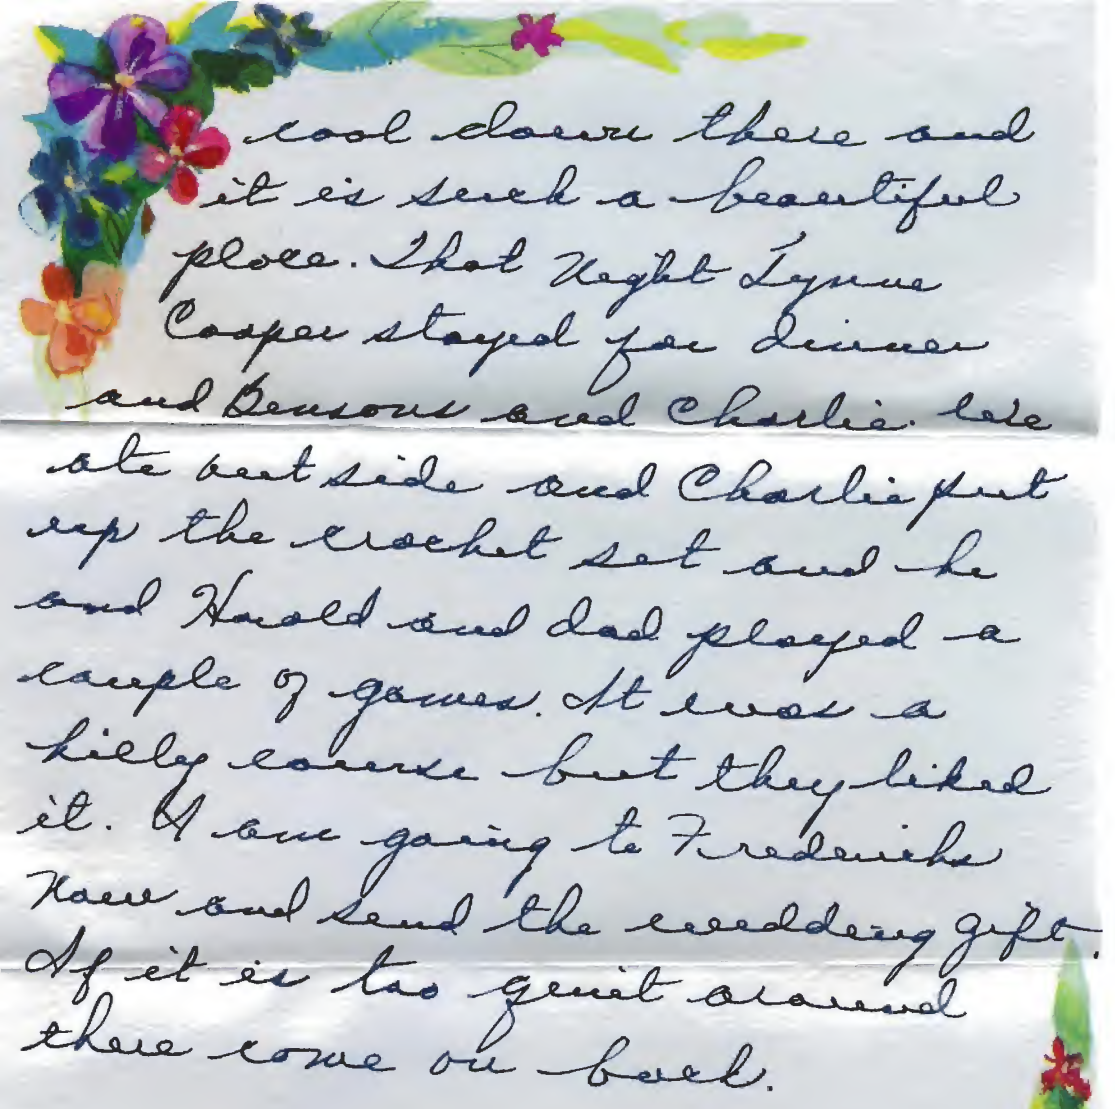 cool down there and
it is such a beautiful
place. That Night Lynne
Cooper stayed for dinner
and Bensons and Charlie. We
ate out side and Charlie put
up the crocket set and he
and Harold and dad played a
couple of games. It was a
hilly course but they liked
it. I am going to Fredericks
Now and send the wedding gift.
If it is too quiet around
there come on back.